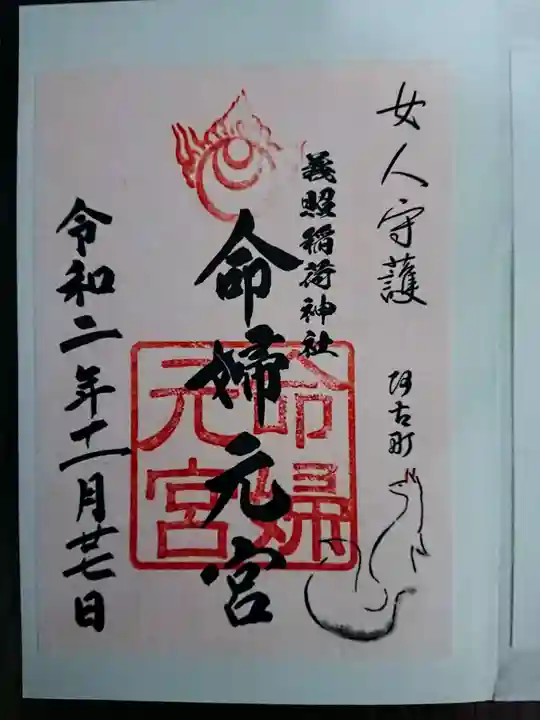 女人守護
阿古町
義照稲荷神社
命婦元宮
命婦
元宮
令和二年十一月廿七日